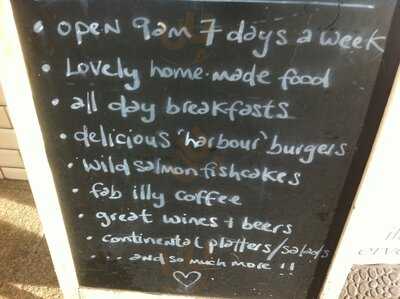 • open 9am 7 days a week
• Lovely home-made food
• all day breakfasts
• delicious 'harbour' burgers
• wild salmon fishcakes
• fab illy coffee
• great wines + beers
• continental platters/salads
• ... and so much more !!